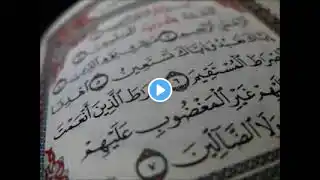 إِيَّاكَ نَعْبُدُ وَإِيَّاكَ نَسْتَعِينُ ۝ اهْدِنَا
الصِّرَاطَ الْمُسْتَقِيمَ ۝ صِرَاطَ الَّذِينَ أَنْعَمْتَ
عَلَيْهِمْ غَيْرِ الْمَغْضُوبِ عَلَيْهِمْ
وَلَا الضَّالِّينَ ۝٧